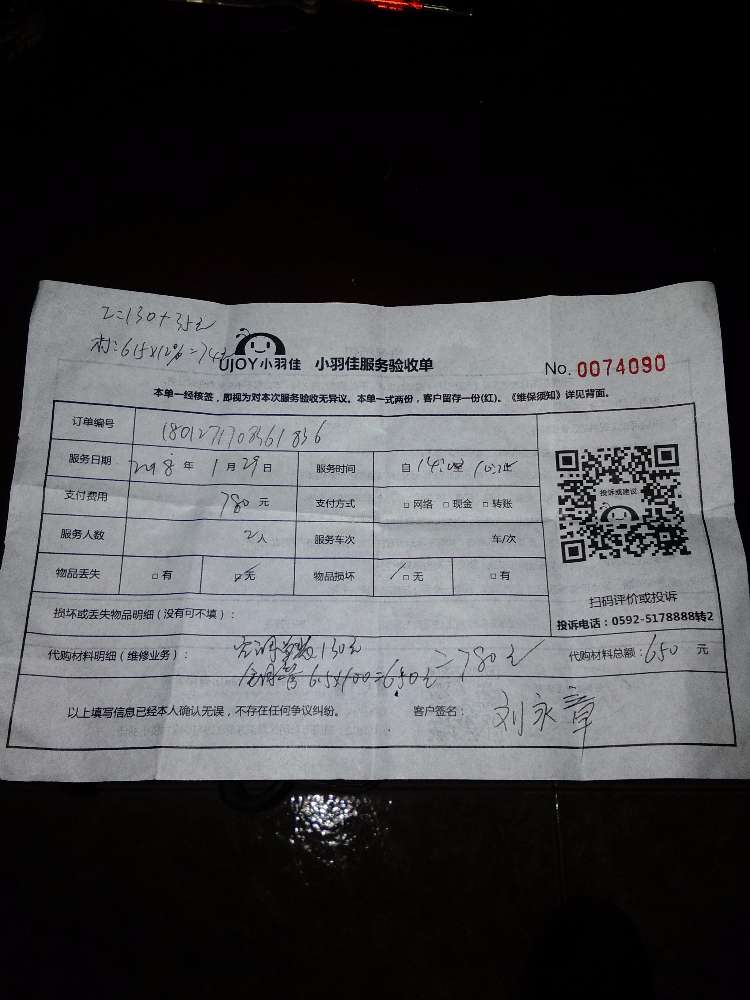 工=130+35元
材:615×12%=74元
UJOY小羽佳 小羽佳服务验收单 No. 0074090
本单一经核签，即视为对本次服务验收无异议。本单一式两份，客户留存一份(红)。《维保须知》详见背面。
订单编号
服务日期 2018 年 1 月 29 日 服务时间 自
支付费用 780 元 支付方式 □ 网络 □ 现金 □ 转账
服务人数 2 人 服务车次 车/次
物品丢失 □ 有 □ 无 物品损坏 □ 无 □ 有
投诉或建议
扫码评价或投诉
投诉电话：0592-5178888转2
损坏或丢失物品明细（没有可不填）：
代购材料明细（维修业务）： 130元
6.5×100=650元 =780元 代购材料总额：650 元
以上填写信息已经本人确认无误，不存在任何争议纠纷。 客户签名： 刘永章